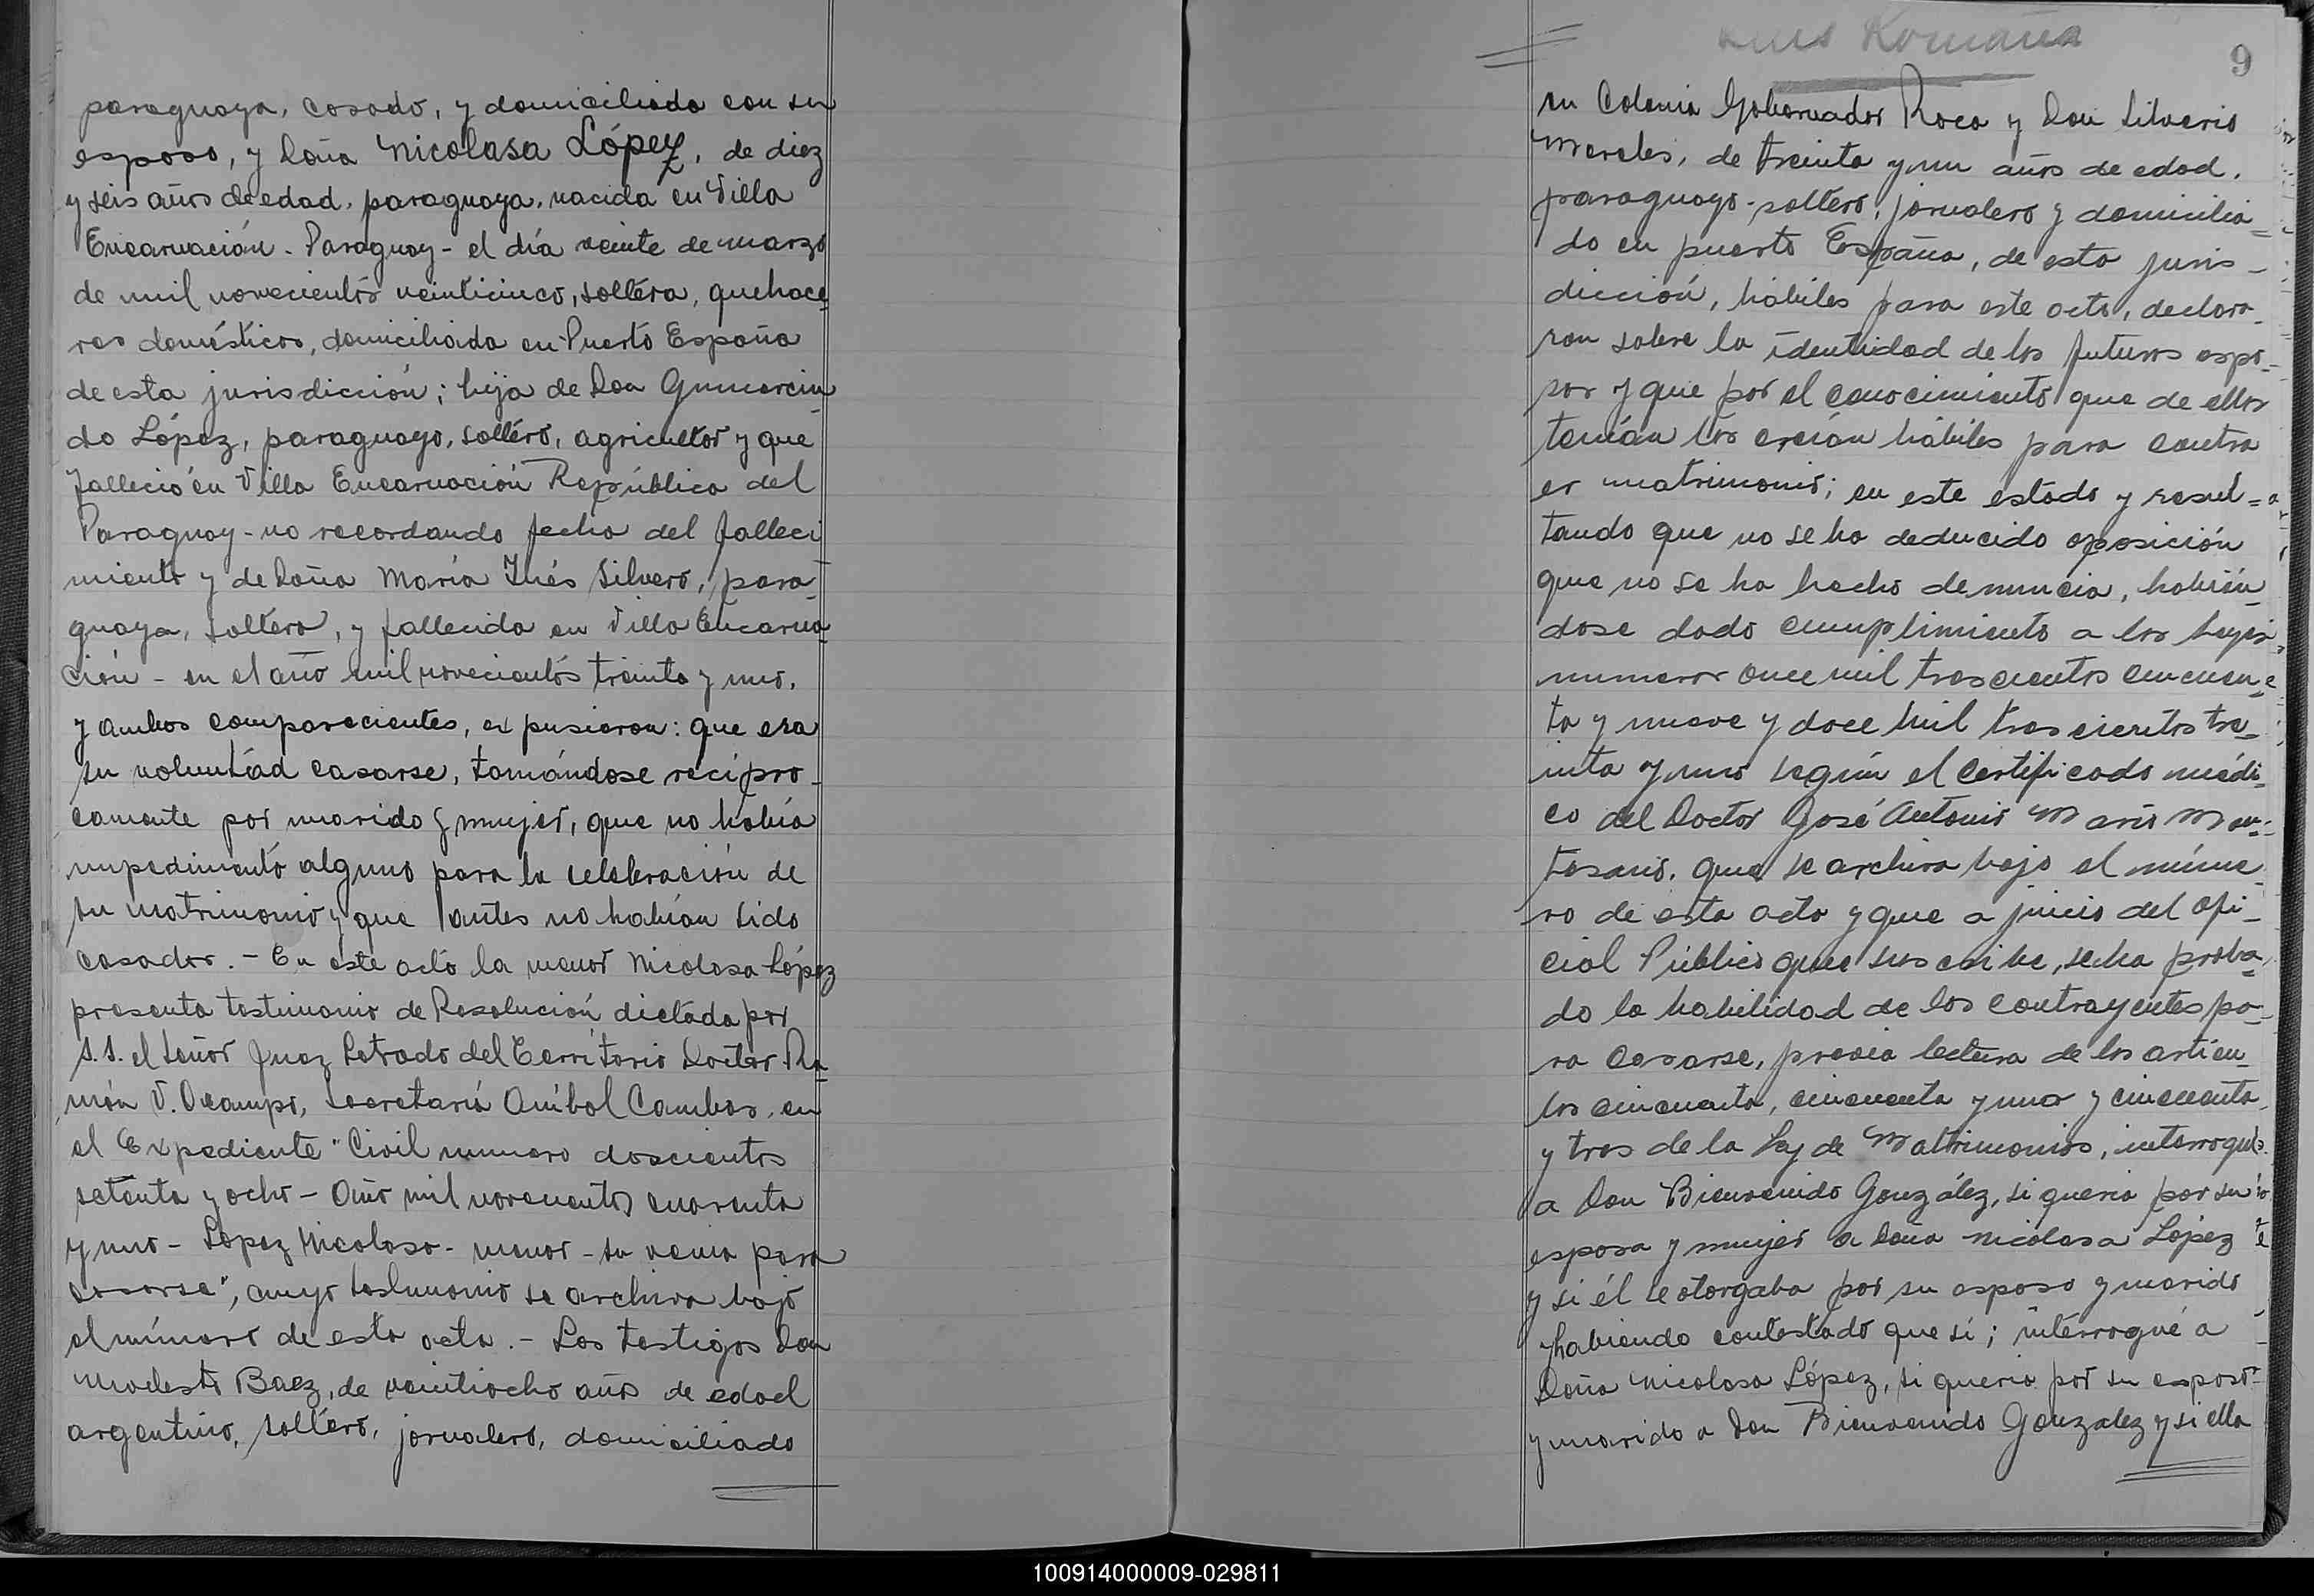 paraguaya, casada, y domiciliada con su
esposo, y Doña Nicolasa López, de diez
y seis años de edad, paraguaya, nacida en Villa
Encarnación - Paraguay - el día veinte de marzo
de mil novecientos veinticinco, soltera, quehace
res domésticos, domiciliada en Puerto España
de esta jurisdicción; hija de Don Gumercin
do López, paraguayo, soltero, agricultor y que
falleció en Villa Encarnación República del
Paraguay - no recordando fecha del falleci
miento y de Doña María Inés Silvero, para-
guaya, soltera, y fallecida en Villa Encarna
ción - en el año mil novecientos treinta y uno.
y ambos comparecientes, expusieron: que era
su voluntad casarse, tomándose recipro-
camente por marido y mujer, que no había
impedimento alguno para la celebración de
su matrimonio y que antes no habían sido
casados. - En este acto la menor Nicolasa López
presenta testimonio de Resolución dictada por
S.S. el Señor Juez Letrado del Territorio Doctor Ra-
món V. Ocampo, Secretaría Aníbal Cambas, en
el Expediente "Civil numero doscientos
setenta y ocho - Año mil novecientos cuarenta
y uno - López Nicolasa - menor - su venia para
casarse", cuyo testimonio se archiva bajo
el número de esta acta. - Los testigos Don
Modesto Baez, de veintiocho años de edad
argentino, soltero, jornalero, domiciliado
Luis Romaña
9
en Colonia Gobernador Roca y Don Silverio
Mereles, de treinta y un años de edad,
paraguayo - soltero, jornalero y domicilia-
do en puerto España, de esta juris-
dicción, hábiles para este acto, declara-
ron sobre la identidad de los futuros espo-
sos y que por el conocimiento que de ellos
tenían los creían hábiles para contra
er matrimonio; en este estado y resul=
tando que no se ha deducido oposición
que no se ha hecho denuncia, habién-
dose dado cumplimiento a las leyes
numeros once mil trescientos cincuen-
ta y nueve y doce mil trescientos tre-
inta y uno según el certificado médi-
co del Doctor José Antonio Mario Mon-
tesano, que se archiva bajo el núme
ro de esta acta y que a juicio del ofi-
cial Público que suscribe, se ha proba-
do la habilidad de los contrayentes pa-
ra casarse, previa lectura de los artícu-
los cincuenta, cincuenta y uno y cincuenta
y tres de la Ley de Matrimonios, interrogué
a Don Bienvenido González, si queria por su
esposa y mujer a Doña Nicolasa López
y si él se otorgaba por su esposo y marido
habiendo contestado que sí; interrogué a
Doña Nicolasa López, si queria por su esposo
y marido a Don Bienvenido Gonzalez y si ella
100914000009-029811